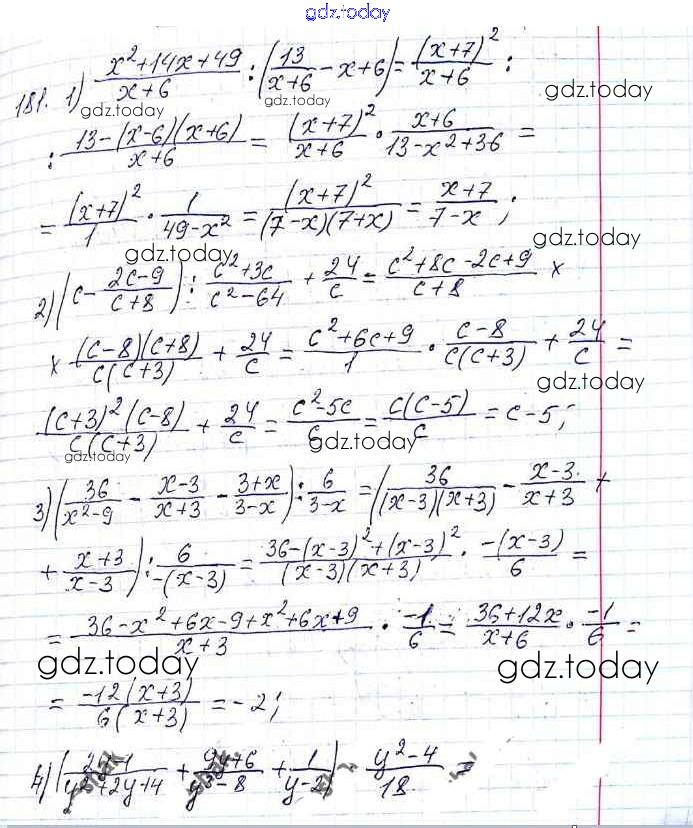 gdz.today
181. 1) (x²+14x+49)/(x+6) : (13/(x+6) - x+6) = (x+7)²/(x+6) :
gdz.today gdz.today gdz.today
: (13-(x-6)(x+6))/(x+6) = (x+7)²/(x+6) · (x+6)/(13-x²+36) =
= (x+7)²/1 · 1/(49-x²) = (x+7)²/((7-x)(7+x)) = (x+7)/(7-x);
gdz.today gdz.today
2) (c - (2c-9)/(c+8)) : (c²+3c)/(c²-64) + 24/c = (c²+8c-2c+9)/(c+8) ×
× ((c-8)(c+8))/(c(c+3)) + 24/c = (c²+6c+9)/1 · (c-8)/(c(c+3)) + 24/c =
gdz.today
((c+3)²(c-8))/(c(c+3)) + 24/c = (c²-5c)/c = (c(c-5))/c = c-5;
gdz.today gdz.today
3) (36/(x²-9) - (x-3)/(x+3) - (3+x)/(3-x)) : 6/(3-x) = (36/((x-3)(x+3)) - (x-3)/(x+3) +
+ (x+3)/(x-3)) : 6/(-(x-3)) = (36-(x-3)²+(x-3)²)/((x-3)(x+3)) · (-(x-3))/6 =
= (36-x²+6x-9+x²+6x+9)/(x+3) · (-1)/6 = (36+12x)/(x+6) · (-1)/6 =
gdz.today gdz.today
= (-12(x+3))/(6(x+3)) = -2;
4) ( + + 1/(y-2)) (y²-4)/18 =